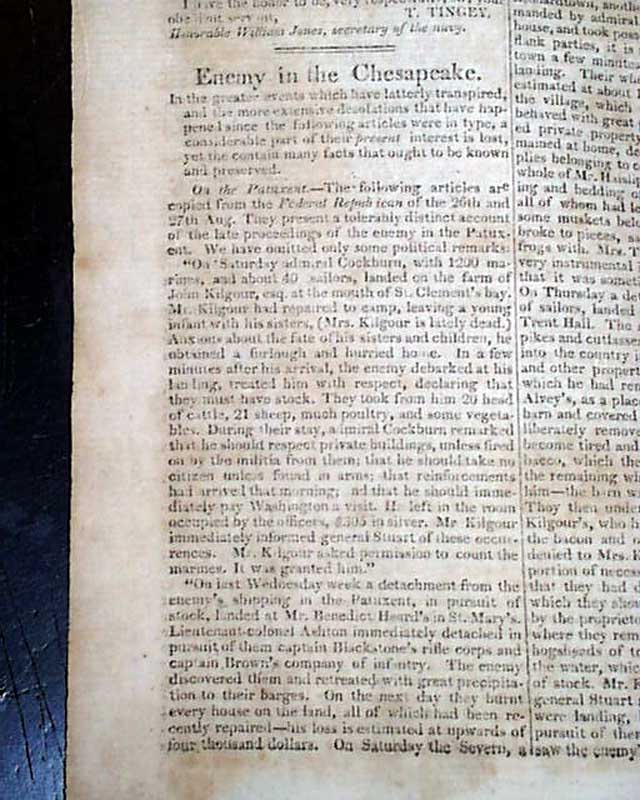 I have the honor to be, very respectfully, sir, your
obedient servant, T. TINGEY.
Honorable William Jones, secretary of the navy.
Enemy in the Chesapeake.
In the greater events which have latterly transpired,
and the more extensive desolations that have hap-
pened since the following articles were in type, a
considerable part of their present interest is lost,
yet the contain many facts that ought to be known
and preserved.
On the Patuxent.—The following articles are
copied from the Federal Republican of the 26th and
27th Aug. They present a tolerably distinct account
of the late proceedings of the enemy in the Patux-
ent. We have omitted only some political remarks:
"On Saturday admiral Cockburn, with 1200 ma-
rines, and about 40 sailors, landed on the farm of
John Kilgour, esq. at the mouth of St. Clement's bay.
Mr. Kilgour had repaired to camp, leaving a young
infant with his sisters, (Mrs. Kilgour is lately dead.)
Anxious about the fate of his sisters and children, he
obtained a furlough and hurried home. In a few
minutes after his arrival, the enemy debarked at his
landing, treated him with respect, declaring that
they must have stock. They took from him 20 head
of cattle, 21 sheep, much poultry, and some vegeta-
bles. During their stay, admiral Cockburn remarked
that he should respect private buildings, unless fired
on by the militia from them; that he should take no
citizen unless found in arms; that reinforcements
had arrived that morning; and that he should imme-
diately pay Washington a visit. He left in the room
occupied by the officers, in silver. Mr Kilgour
immediately informed general Stuart of these occur-
rences. Mr. Kilgour asked permission to count the
marines. It was granted him."
"On last Wednesday week a detachment from the
enemy's shipping in the Patuxent, in pursuit of
stock, landed at Mr. Benedict Heard's in St. Mary's.
Lieutenant-colonel Ashton immediately detached in
pursuit of them captain Blackstone's rifle corps and
captain Brown's company of infantry. The enemy
discovered them and retreated with great precipita-
tion to their barges. On the next day they burnt
every house on the land, all of which had been re-
cently repaired—his loss is estimated at upwards of
four thousand dollars. On Saturday the Severn, a
manded by admiral
house, and took poss
flank parties, it is
town a few minutes
landing. Their wh
estimated at about 1
the village, which
behaved with great
ed private property
mained at home, de
plies belonging to
whole of Mr. Haislip
ing and bedding
all of whom had le
some muskets belo
broke to pieces, a
frogs with. Mrs. T
very instrumental
that it was somet
On Thursday a de
of sailors, landed
Trent Hall. The
pikes and cutlasses
into the country
and other propert
which he had rem
Alvey's, as a place
barn and covered
liberately remove
become tired and
bacco, which the
the remaining wh
him—the barn w
They then under
Kilgour's, who h
the bacon and o
denied to Mrs. K
portion of necess
that they had d
which they shoe
by the proprieto
where they rem
hogsheads of to
the water, which
of stock. Mr. K
general Stuart
were landing,
pursuit of them
saw the enemy